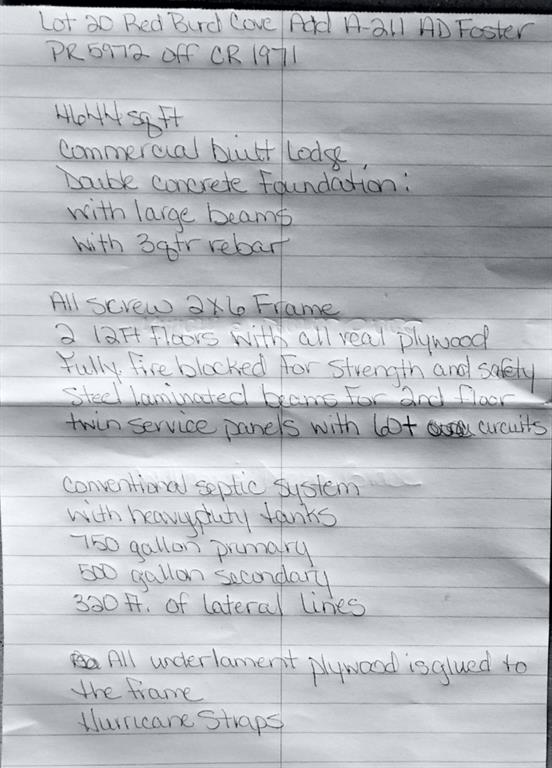 Lot 20 Red Burd Cove Add A-211 AD Foster
PR 5972 off CR 1971
4644 sqft
Commercial built Lodge
Double concrete foundation:
with large beams
with 3qtr rebar
All screw 2x6 Frame
2 12ft floors with all real plywood
Fully fire blocked for strength and safety
Steel laminated beams for 2nd floor
twin service panels with 60+ circuits
Conventional septic system
with heavyduty tanks
750 gallon primary
500 gallon secondary
320 ft. of lateral lines
All underlament plywood is glued to
the frame
Hurricane Straps